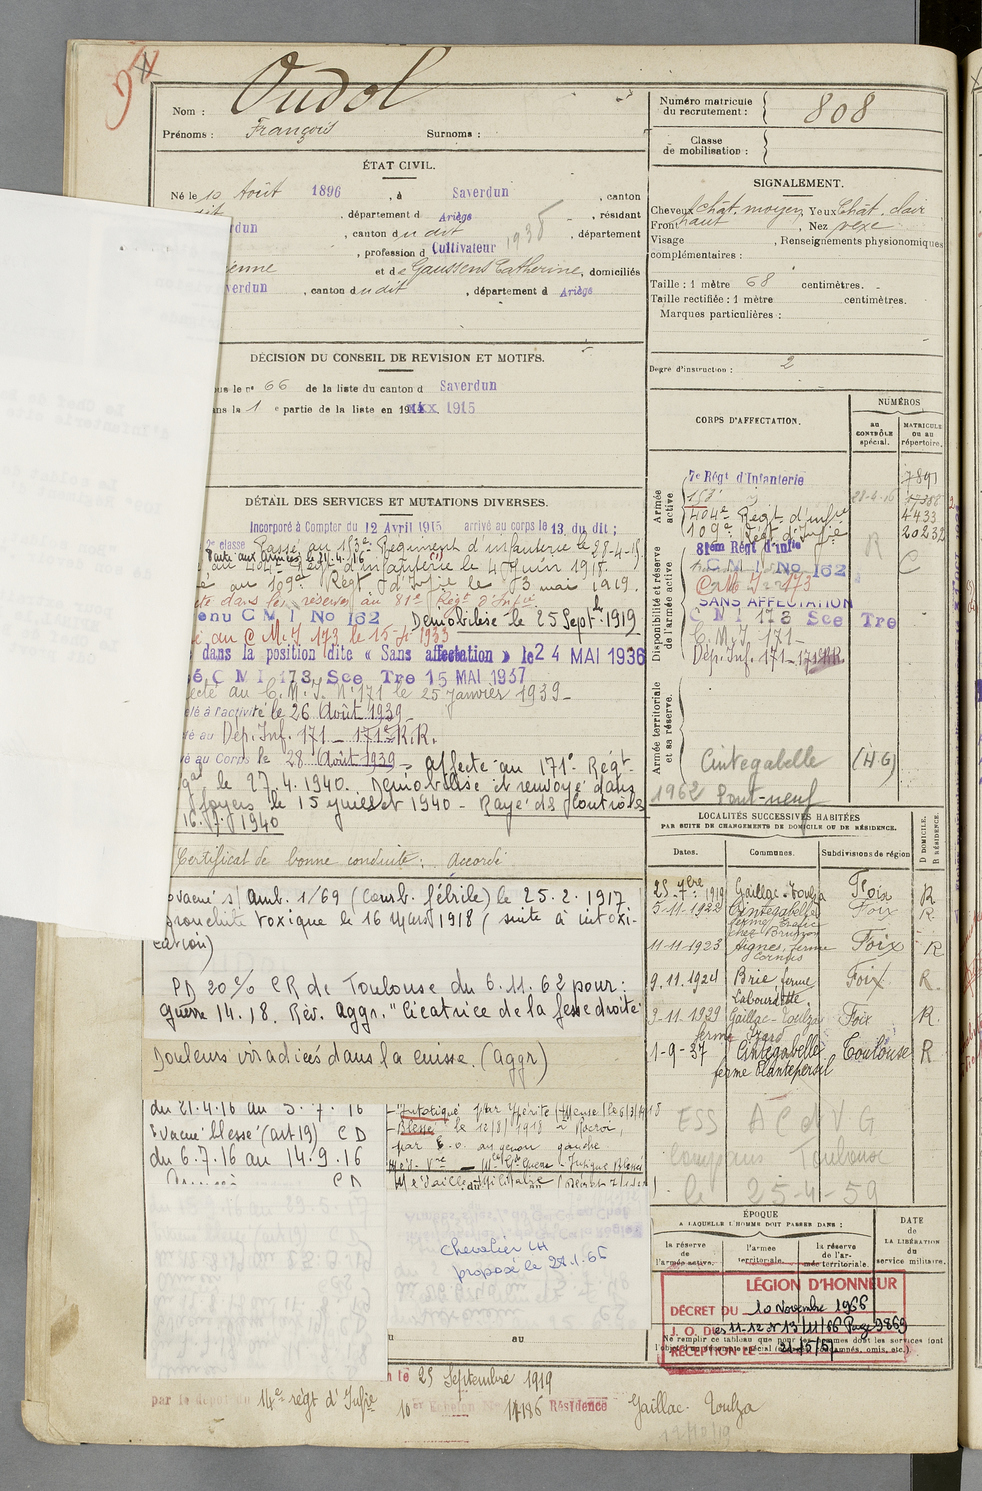 Nom : Oudol
Prénoms : François Surnoms :
Numéro matricule du recrutement : 808
Classe de mobilisation :
ÉTAT CIVIL.
Né le 10 Août 1896 , à Saverdun , canton
dit , département d Ariège , résidant
rdun , canton dudit 1938 , département
, profession d Cultivateur
ienne et de Gaussens Catherine, domiciliés
verdun , canton dudit , département d Ariège
SIGNALEMENT.
Cheveux chât. moyen Yeux chât. clair
Front haut , Nez vexe
Visage , Renseignements physionomiques
complémentaires :
Taille : 1 mètre 68 centimètres.
Taille rectifiée : 1 mètre centimètres.
Marques particulières :
Degré d'instruction : 2
DÉCISION DU CONSEIL DE REVISION ET MOTIFS.
ous le n° 66 de la liste du canton d Saverdun
ans la 1 e partie de la liste en 191 xxx 1915
DÉTAIL DES SERVICES ET MUTATIONS DIVERSES.
Incorporé à Compter du 12 Avril 1915 arrivé au corps le 13 du dit ;
2e classe Passé au 153e Régiment d'infanterie le 28-4-16
au 404e Régt d'infanterie le 4 Juin 1918.
é au 109e Régt d'Infie le 13 mai 1919.
cté dans les réserves au 81e Régt d'Infie
enu C M I No 162 Démobilisé le 25 Septbre 1919
é au C.M.I 173 le 15-4-1933
dans la position dite « Sans affectation » le 24 MAI 1936
é C M I 173 Sce Tre 15 MAI 1937
ecté au C.M.I. N°171 le 25 janvier 1939_
elé à l'activité le 26 Août 1939_
té au Dép. Inf. 171 _ 171e R.R.
vé au Corps le 28 Août 1939 _ affecté au 171e Régt
gal le 27.4.1940. Démobilisé et renvoyé dans
foyers le 15 juillet 1940 - Rayé des Contrôles
16.7.1940
Certificat de bonne conduite : Accordé
CORPS D'AFFECTATION.
NUMÉROS
au CONTRÔLE spécial.
MATRICULE ou au répertoire.
Armée active
7e Régt d'Infanterie 7891
153e 28-4-16
404e Régt d'infie 4433
109e Régt d'Infie 20232
Disponibilité et réserve de l'armée active
81em Régt d'infie R C
C M I No 162
C M I 173
SANS AFFECTATION
C M I 173 Sce Tre
C.M.I. 171_
Dép. Inf. 171_171e RR
Armée territoriale et sa réserve.
Cintegabelle (H G)
1962 Pont-neuf
LOCALITÉS SUCCESSIVES HABITÉES
PAR SUITE DE CHANGEMENTS DE DOMICILE OU DE RÉSIDENCE.
Dates. Communes. Subdivisions de région D DOMICILE. R RÉSIDENCE.
25 7bre 1919 Gaillac-Toulza Foix R
5-11-1922 Cintegabelle Foix R
11-11-1923 Aignes, ferme Foix R
9.11.1924 Brie ferme Foix R.
3-11-1929 Gaillac-Toulza Foix R.
ferme Izard
1-9-37 Cintegabelle Toulouse R
ferme Plantepersil
ovacué s/ Amb. 1/69 (Courb. fébrile) le 25.2.1917
Bronchite toxique le 16 Mars 1918 ( suite à intoxi-
cation)
PD 20% CR de Toulouse du 6.11.62 pour :
guerre 14.18. Rév. Aggr. "Cicatrice de la fesse droite
Douleurs irradiées dans la cuisse. (aggr)
du 21.4.16 au 5.7.16
Evacué blessé (art 19) C D
du 6.7.16 au 14.9.16
C D
Intoxiqué par Ypérite
Blessé le 10/8/1918 à Rocroi,
par E.O. au genou gauche
Médaille Militaire
ESS A C d V G
Toulouse
le 25-4-59
Chevalier LH
proposé le 28.1.66
ÉPOQUE
A LAQUELLE L'HOMME DOIT PASSER DANS :
la réserve de l'armée active.
l'armée territoriale.
la réserve de l'armée territoriale.
DATE de LA LIBÉRATION du service militaire.
LÉGION D'HONNEUR
DÉCRET DU 10 Novembre 1966
J. O. Des 11-12 et 13/11/66 Page 9869
RÉCEPTION LE
au
le 25 Septembre 1919
par le dépôt du 14e régt d'Infie 10er Echelon No 17186 Résidence Gaillac-Toulza